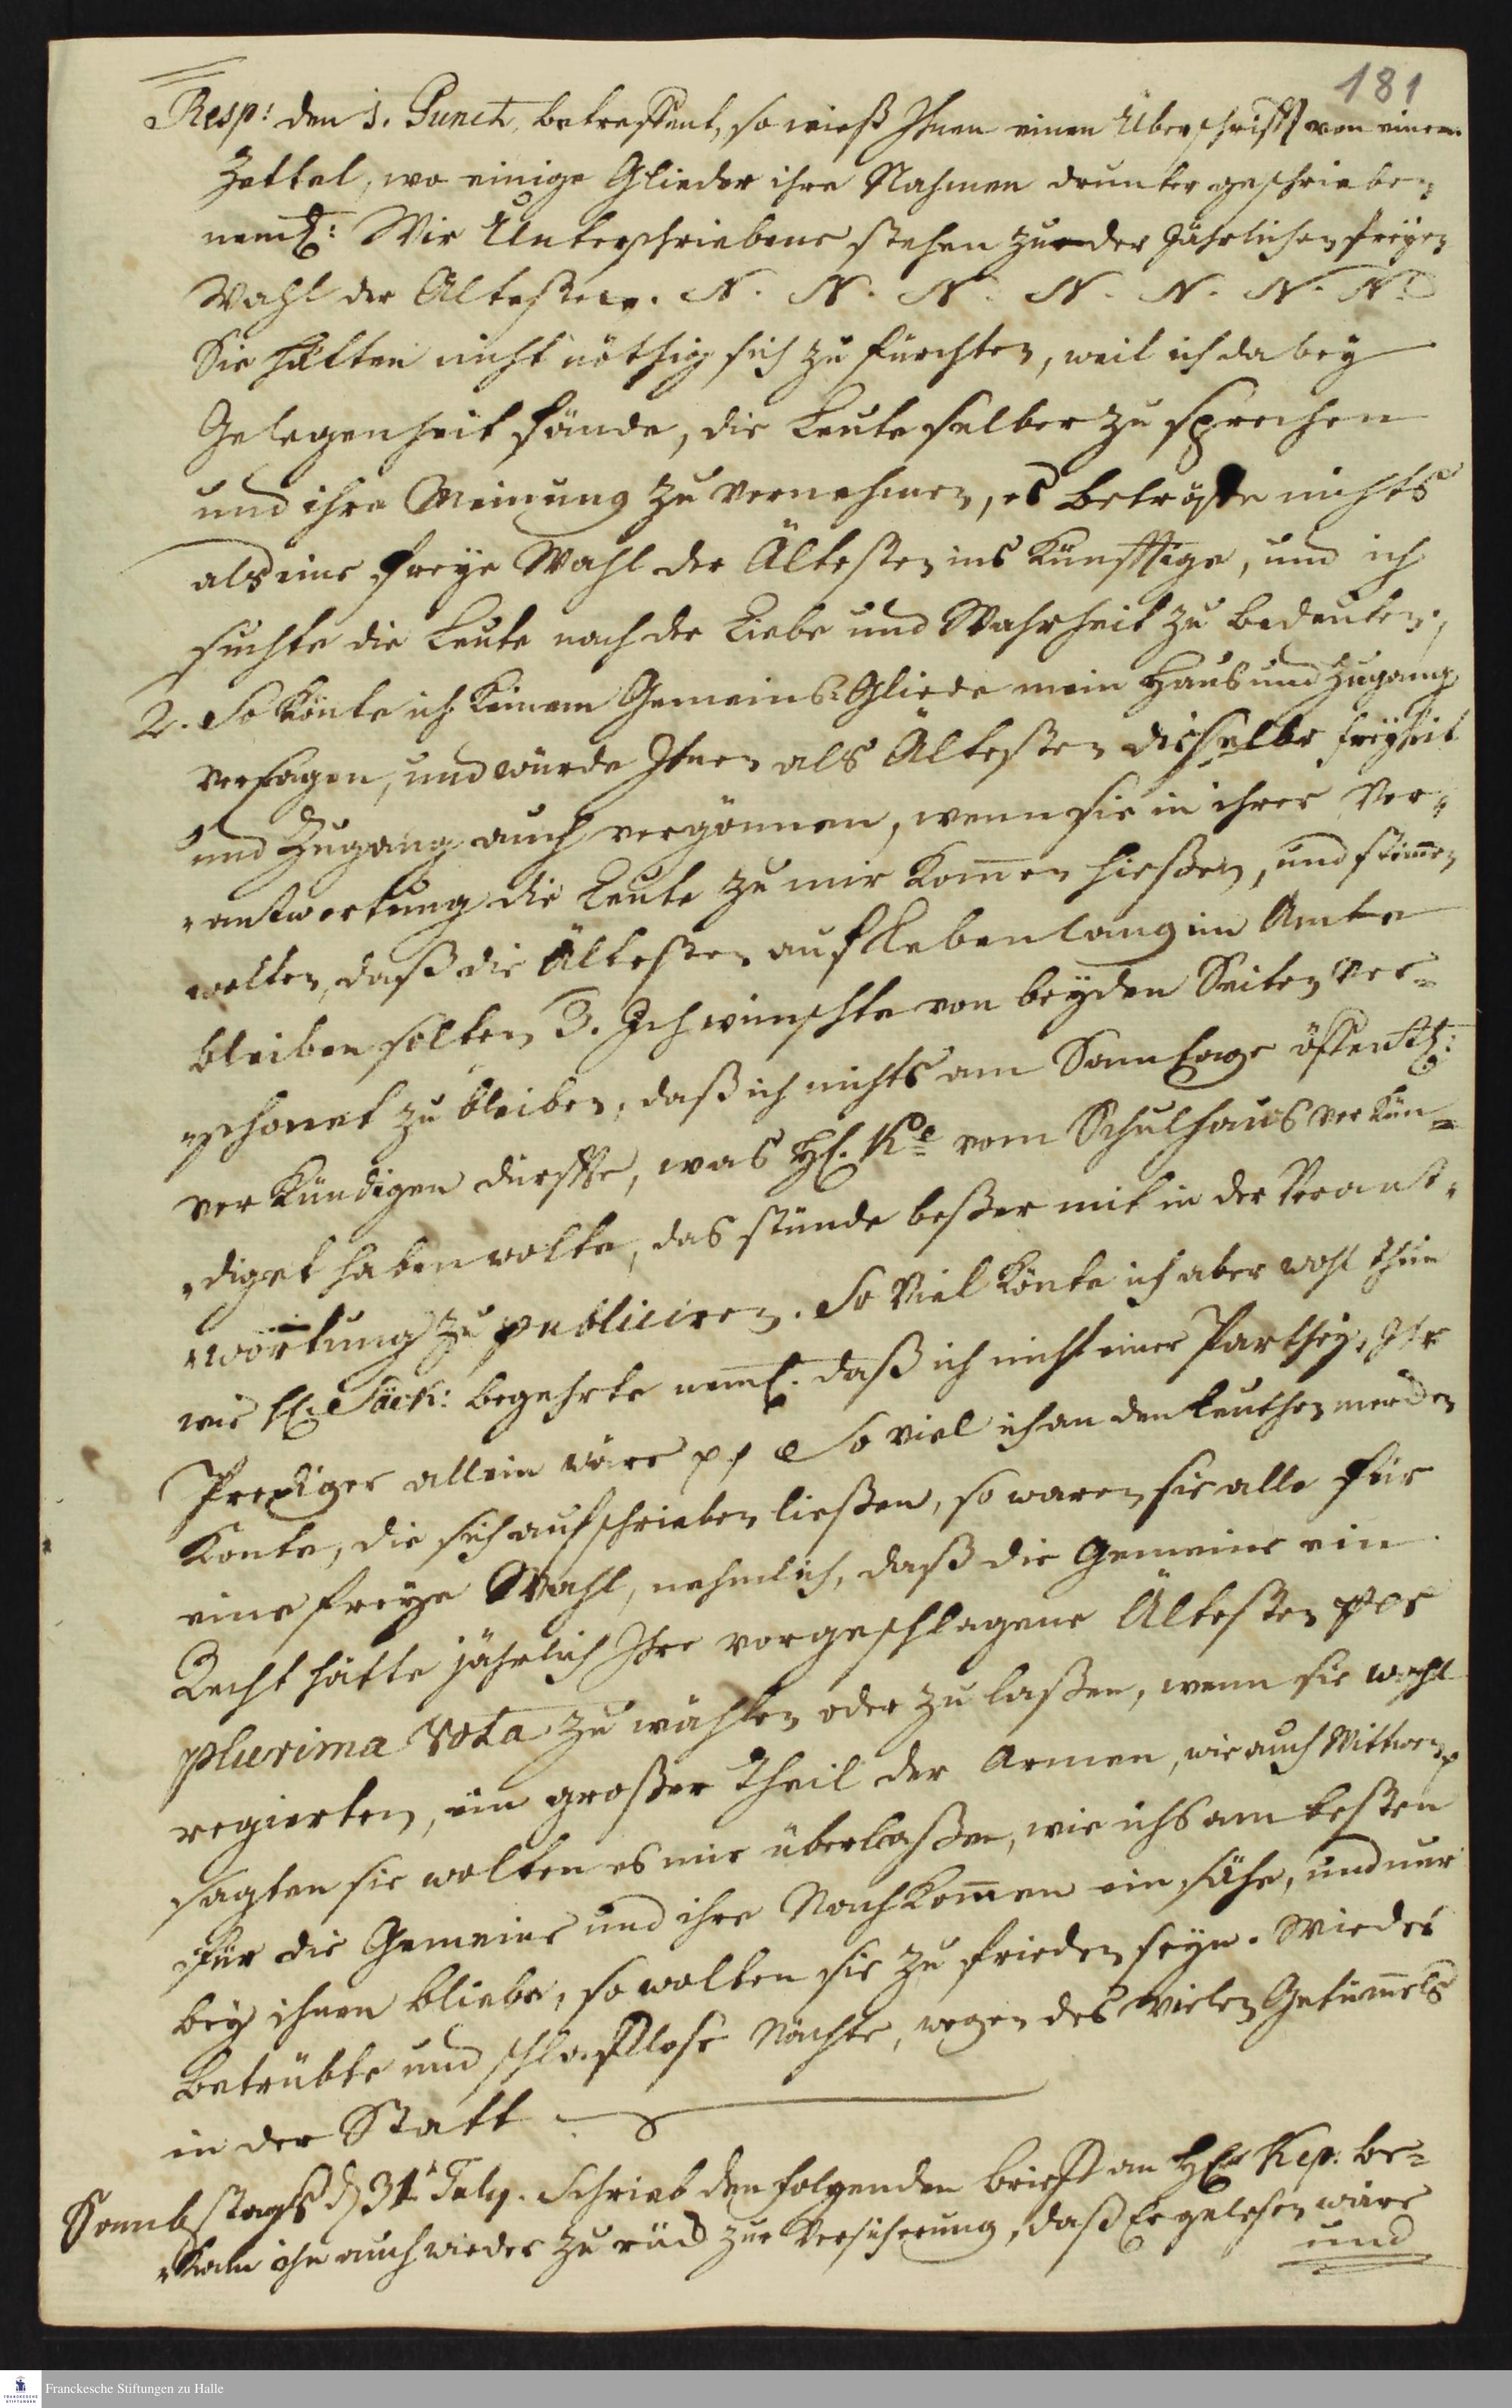 181
Resp: den 1. Punct, betreffent, so wieß Ihnen einen Uberschrifft von einem
Zettel, wo einige Glieder ihre Nahmen drunter geschrieben
neml: Wir Unterschriebene stehen zu der Jährlichen freyen
Wahl der Ältesten. N. N. N. N. N. N. N.
Sie hätten nicht nöthig sich zu fürchten, weil ich dabey
Gelegenheit fände, die Leute selber zu sprechen
und ihre Meinung zu vernehmen, es beträffe nichts
als eine freye Wahl der Ältesten ins Künfftige, und ich
suchte die Leute nach der Liebe und Wahrheit zu bedeuten,
2. So könte ich keinem Gemeins-Gliede mein Hauß und Zugang
versagen, und würde Ihnen als Ältesten dieselbe freyheit
und Zugang auch vergönnen, wenn sie in ihrer Ver-
antwortung die Leute zu mir kom̅en hießen, und stim̅en
wolten, daß die Ältesten auf Lebenlang im Amte
bleiben solten 3. Ich wünschte von beyden Seiten ver-
schonet zu bleiben, daß ich nichts am Sonntage öffentl:
verkündigen dürffte, was H. K. vom Schulhaus verkün-
diget haben wolte, das stünde beßer mit in der Verant-
wortung zu publiciren. So viel könte ich aber wohl thun
wie H. Säck: begehrte neml. daß ich nicht einer Parthey, Ihr
Prediger allein wäre pp So viel ich an den Leuthen mercken
konte, die sich aufschrieben ließen, so waren sie alle für
eine freye Wahl, nehmlich, daß die Gemeine ein
Recht hätte jährlich Ihre vorgeschlagene Ältesten per
plurima Vota zu wählen oder zu laßen, wenn sie wohl
regierten, ein großer Theil der Armen, wie auch Wittwen
sagten sie wolten es mir überlaßen, wie ichs am besten
für die Gemeine und ihre Nachkom̅en ein sähe, und nur
bey ihnen bliebe, so wolten sie zu frieden seyn. Wieder
betrübte und schlafflose Nächte, wegen des vielen Getüm̅els
in der Statt
Sonnbstags d 31 July. Schrieb den folgenden brieff an H. Kep. be-
kam ihn auch wieder zurück zur Versicherung, daß Er gelesen wäre
und
Franckesche Stiftungen zu Halle